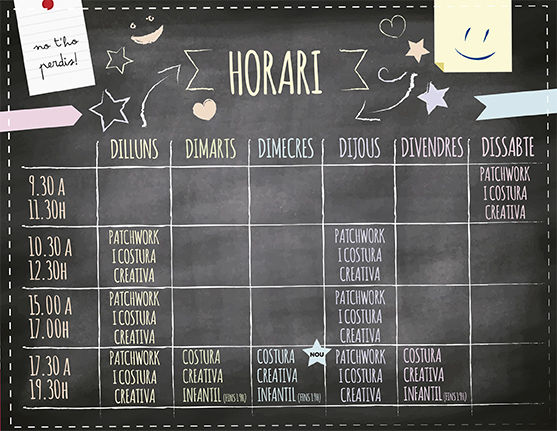 no t'ho
perdis!
HORARI
DILLUNS DIMARTS DIMECRES DIJOUS DIVENDRES DISSABTE
9.30 A
11.30H
PATCHWORK
I COSTURA
CREATIVA
10.30 A
12.30H
PATCHWORK
I COSTURA
CREATIVA
PATCHWORK
I COSTURA
CREATIVA
15.00 A
17.00H
PATCHWORK
I COSTURA
CREATIVA
PATCHWORK
I COSTURA
CREATIVA
17.30 A
19.30H
PATCHWORK
I COSTURA
CREATIVA
COSTURA
CREATIVA
INFANTIL (FINS 19H)
NOU
COSTURA
CREATIVA
INFANTIL (FINS 19H)
PATCHWORK
I COSTURA
CREATIVA
COSTURA
CREATIVA
INFANTIL (FINS 19H)